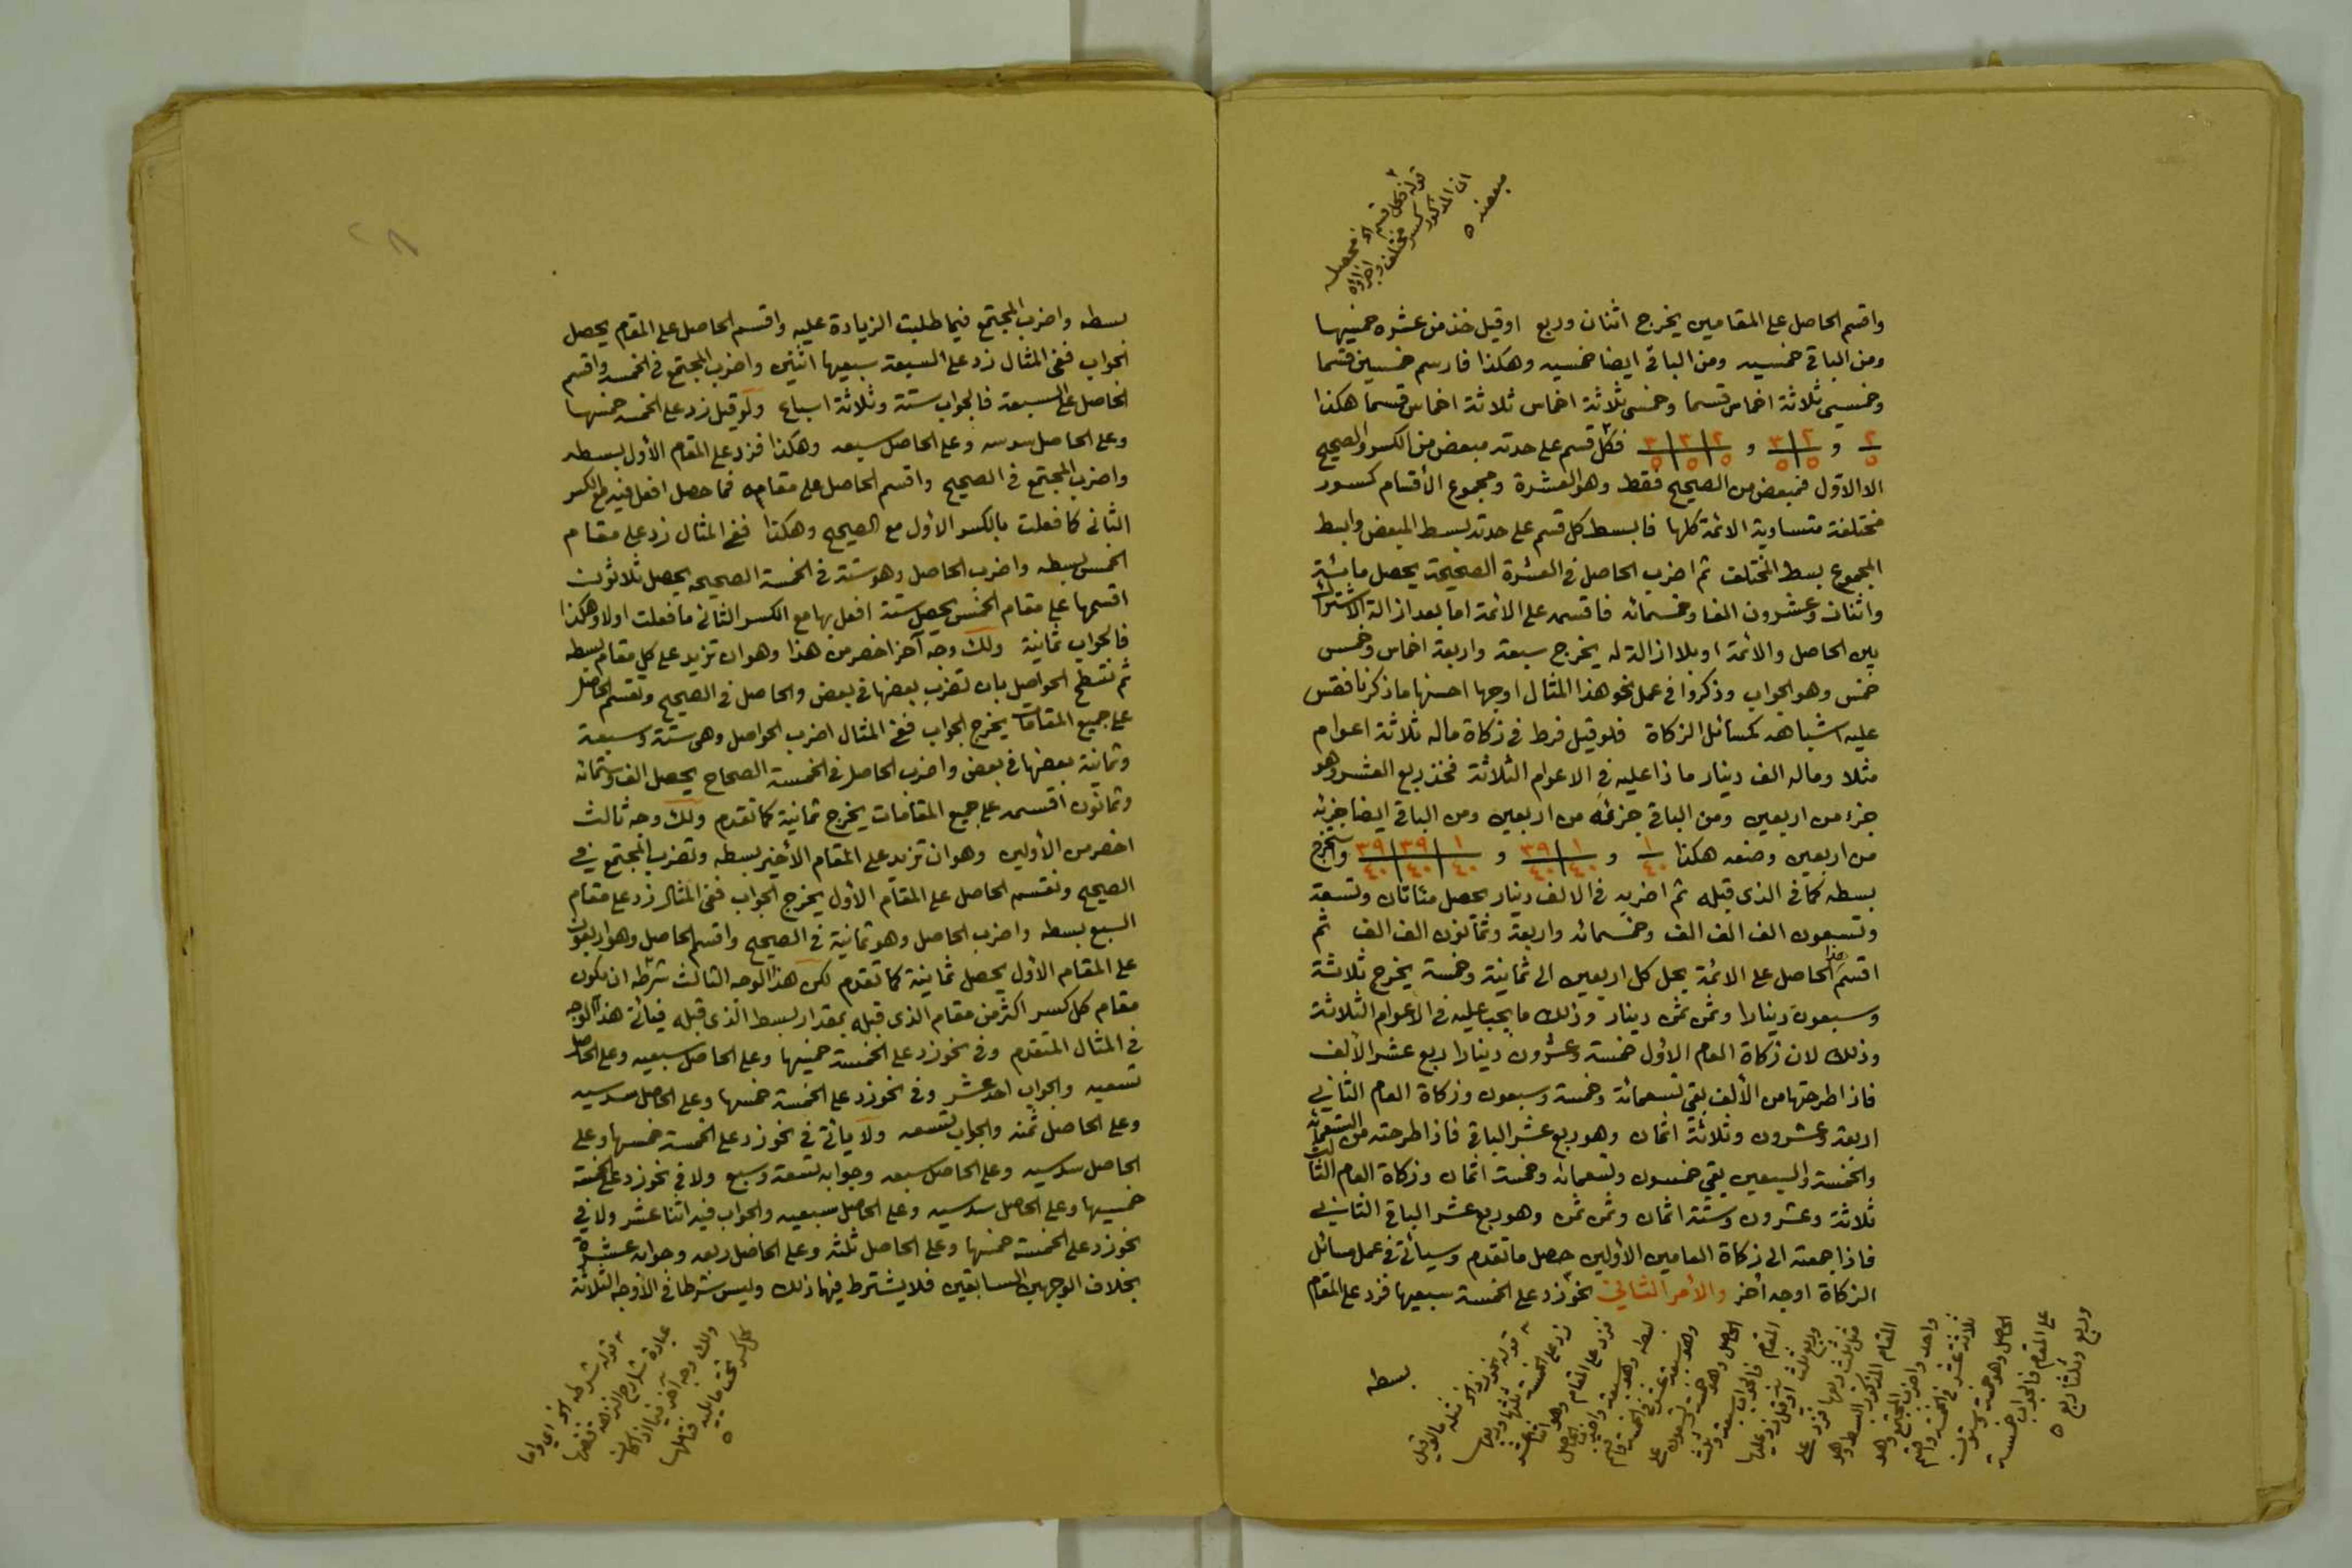 واقسم الحاصل على المقامين يخرج اثنان وربع اوقيل خذ من عشرة خمسيها
ومن الباقي خمسيه ومن الباقي ايضا خمسيه وهكذا فارسم خمسين قسما
وخمسي ثلاثة اخماس قسما وخمسي ثلاثة اخماس ثلاثة اخماس قسما هكذا
٢/٥ و ٢/٥ ٣/٥ و ٢/٥ ٣/٥ ٣/٥ فكل قسم على حدته مبعض من الكسر والصحيح
الا الاول فمبعض من الصحيح فقط وهو العشرة ومجموع الأقسام كسور
مختلفة متساوية الائمة كلها فابسط كل قسم على حدته بسط المبعض وابسط
المجموع بسط المختلف ثم اضرب الحاصل في العشرة الصحيحة يحصل مائة
واثنان وعشرون الفا وخمسمائه فاقسمه على الائمة اما بعد ازالة الاشتراك
بين الحاصل والائمة او بلا ازالة له يخرج سبعة واربعة اخماس وخمس
خمس وهو الجواب وذكروا في عمل نحو هذا المثال اوجها احسنها ما ذكرنا فقس
عليه اشباهه كمسائل الزكاة فلو قيل فرط في زكاة ماله ثلاثة اعوام
مثلا وماله الف دينار ماذا عليه في الاعوام الثلاثة فخذ ربع العشر وهو
جزء من اربعين ومن الباقي جزئه من اربعين ومن الباقي ايضا جزئه
من اربعين وضعه هكذا ١/٤٠ و ١/٤٠ ٣٩/٤٠ و ١/٤٠ ٣٩/٤٠ ٣٩/٤٠ واستخرج
بسطه كما في الذي قبله ثم اضربه في الالف دينار يحصل مئاتان وتسعة
وتسعون الف الف الف وخمسمائه واربعة وثمانون الف الف ثم
اقسم هذا الحاصل على الائمة بحل كل اربعين الى ثمانية وخمسة يخرج ثلاثة
وسبعون دينارا وثمن ثمن دينار وذلك ما يجب عليه في الأعوام الثلاثة
وذلك لان زكاة العام الأول خمسة وعشرون دينارا ربع عشر الألف
فاذا طرحتها من الألف بقي تسعمائة وخمسة وسبعون وزكاة العام الثاني
اربعة وعشرون وثلاثة اثمان وهو ربع عشر الباقي فاذا طرحته من التسعمائه
والخمسة والسبعين بقي خمسون وتسعمائه وخمسة اثمان وزكاة العام الثالث
ثلاثة وعشرون وستة اثمان وثمن ثمن وهو ربع عشر الباقي الثاني
فاذا جمعته الى زكاة العامين الأولين حصل ما تقدم وسيأتي في عمل مسائل
الزكاة اوجه أخر والأمر الثاني نحو زد على الخمسة سبعيها فزد على المقام
بسطه
بسطه واضرب المجتمع فيما طلبت الزيادة عليه واقسم الحاصل على المقام يحصل
الجواب ففي المثال زد على السبعة سبعيها اثنين واضرب المجتمع في الخمسه واقسم
الحاصل على السبعة فالجواب ستة وثلاثة اسباع ولو قيل زد على الخمسه خمسها
وعلى الحاصل سدسه وعلى الحاصل سبعه وهكذا فزد على المقام الأول بسطه
واضرب المجتمع في الصحيح واقسم الحاصل على مقامه فما حصل افعل فيه مع الكسر
الثاني كما فعلت بالكسر الأول مع الصحيح وهكذا ففي المثال زد على مقام
الخمس بسطه واضرب الحاصل وهو ستة في الخمسة الصحيحه يحصل ثلاثون
اقسمها على مقام الخمس يحصل ستة افعل بها مع الكسر الثاني ما فعلت اولا وهكذا
فالجواب ثمانية ولك وجه آخر اخصر من هذا وهو ان تزيد على كل مقام بسطه
ثم تسطح الحواصل بان تضرب بعضها في بعض والحاصل في الصحيح وتقسم الحاصل
على جميع المقامات يخرج الجواب ففي المثال اضرب الحواصل وهي ستة وسبعة
وثمانية بعضها في بعض واضرب الحاصل في الخمسة الصحاح يحصل الف وستمائه
وثمانون اقسمه على جميع المقامات يخرج ثمانية كما تقدم ولك وجه ثالث
اخصر من الأولين وهو ان تزيد على المقام الأخير بسطه وتضرب المجتمع في
الصحيح وتقسم الحاصل على المقام الأول يخرج الجواب ففي المثال زد على مقام
السبع بسطه واضرب الحاصل وهو ثمانية في الصحيح واقسم الحاصل وهو اربعون
على المقام الأول يحصل ثمانية كما تقدم لكن هذا الوجه الثالث شرطه ان يكون
مقام كل كسر اكثر من مقام الذي قبله بمقدار بسط الذي قبله فيأتي هذا الوجه
في المثال المتقدم وفي نحو زد على الخمسة خمسيها وعلى الحاصل سبعيه وعلى الحاصل
تسعيه والجواب احد عشر وفي نحو زد على الخمسة خمسها وعلى الحاصل سدسيه
وعلى الحاصل ثمنه والجواب تسعه ولا يأتي في نحو زد على الخمسة خمسها وعلى
الحاصل سدسيه وعلى الحاصل سبعه وجوابه تسعة وسبع ولا في نحو زد على الخمسة
خمسيها وعلى الحاصل سدسيه وعلى الحاصل سبعيه والجواب فيه اثنا عشر ولا في
نحو زد على الخمسة خمسها وعلى الحاصل ثلثه وعلى الحاصل ربعه وجوابه عشرة
بخلاف الوجهين السابقين فلا يشترط فيهما ذلك وليس شرطا في الأوجه الثلاثة